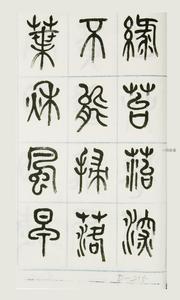 綠苔苔深
不能掃落
葉秋風早